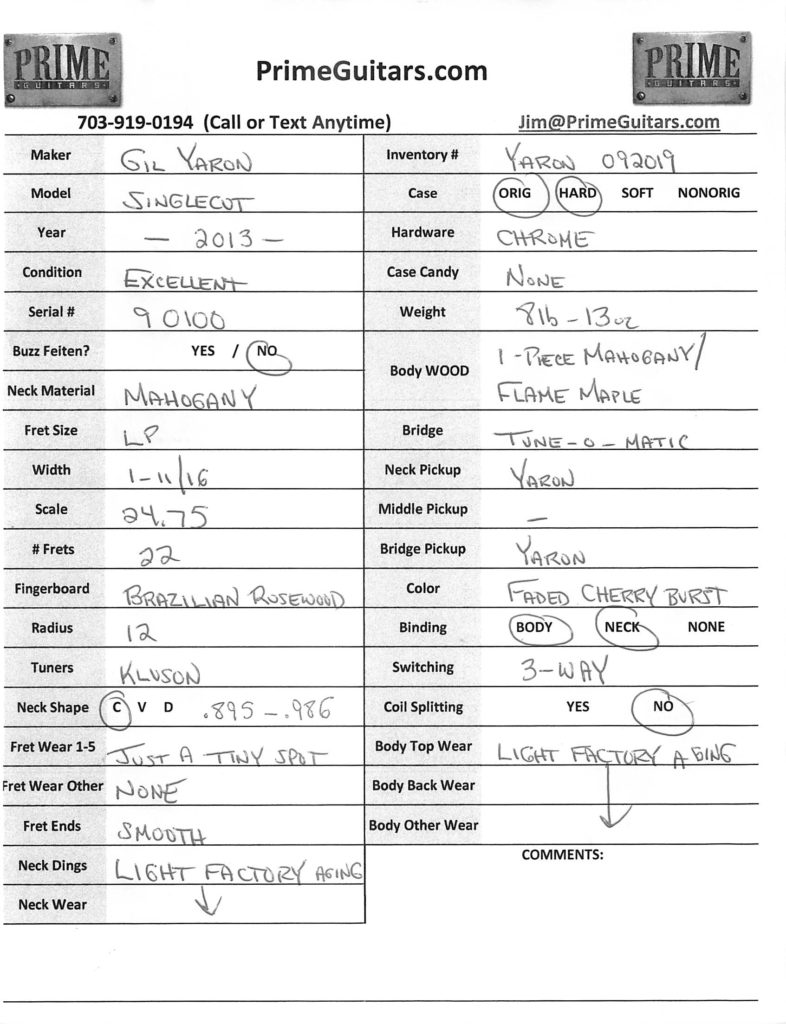 PRIME
GUITARS
PrimeGuitars.com
PRIME
GUITARS
703-919-0194 (Call or Text Anytime)
Jim@PrimeGuitars.com
Maker GIL YARON
Model SINGLECUT
Year — 2013 —
Condition EXCELLENT
Serial # 9 0100
Buzz Feiten? YES / NO
Neck Material MAHOGANY
Fret Size LP
Width 1-11/16
Scale 24.75
# Frets 22
Fingerboard BRAZILIAN ROSEWOOD
Radius 12
Tuners KLUSON
Neck Shape C V D .895 - .986
Fret Wear 1-5 JUST A TINY SPOT
Fret Wear Other NONE
Fret Ends SMOOTH
Neck Dings LIGHT FACTORY AGING
Neck Wear ↓
Inventory # YARON 092019
Case ORIG HARD SOFT NONORIG
Hardware CHROME
Case Candy NONE
Weight 8lb - 13oz
Body WOOD 1-PIECE MAHOGANY/
FLAME MAPLE
Bridge TUNE-O-MATIC
Neck Pickup YARON
Middle Pickup —
Bridge Pickup YARON
Color FADED CHERRY BURST
Binding BODY NECK NONE
Switching 3-WAY
Coil Splitting YES NO
Body Top Wear LIGHT FACTORY AGING
Body Back Wear
Body Other Wear ↓
COMMENTS: